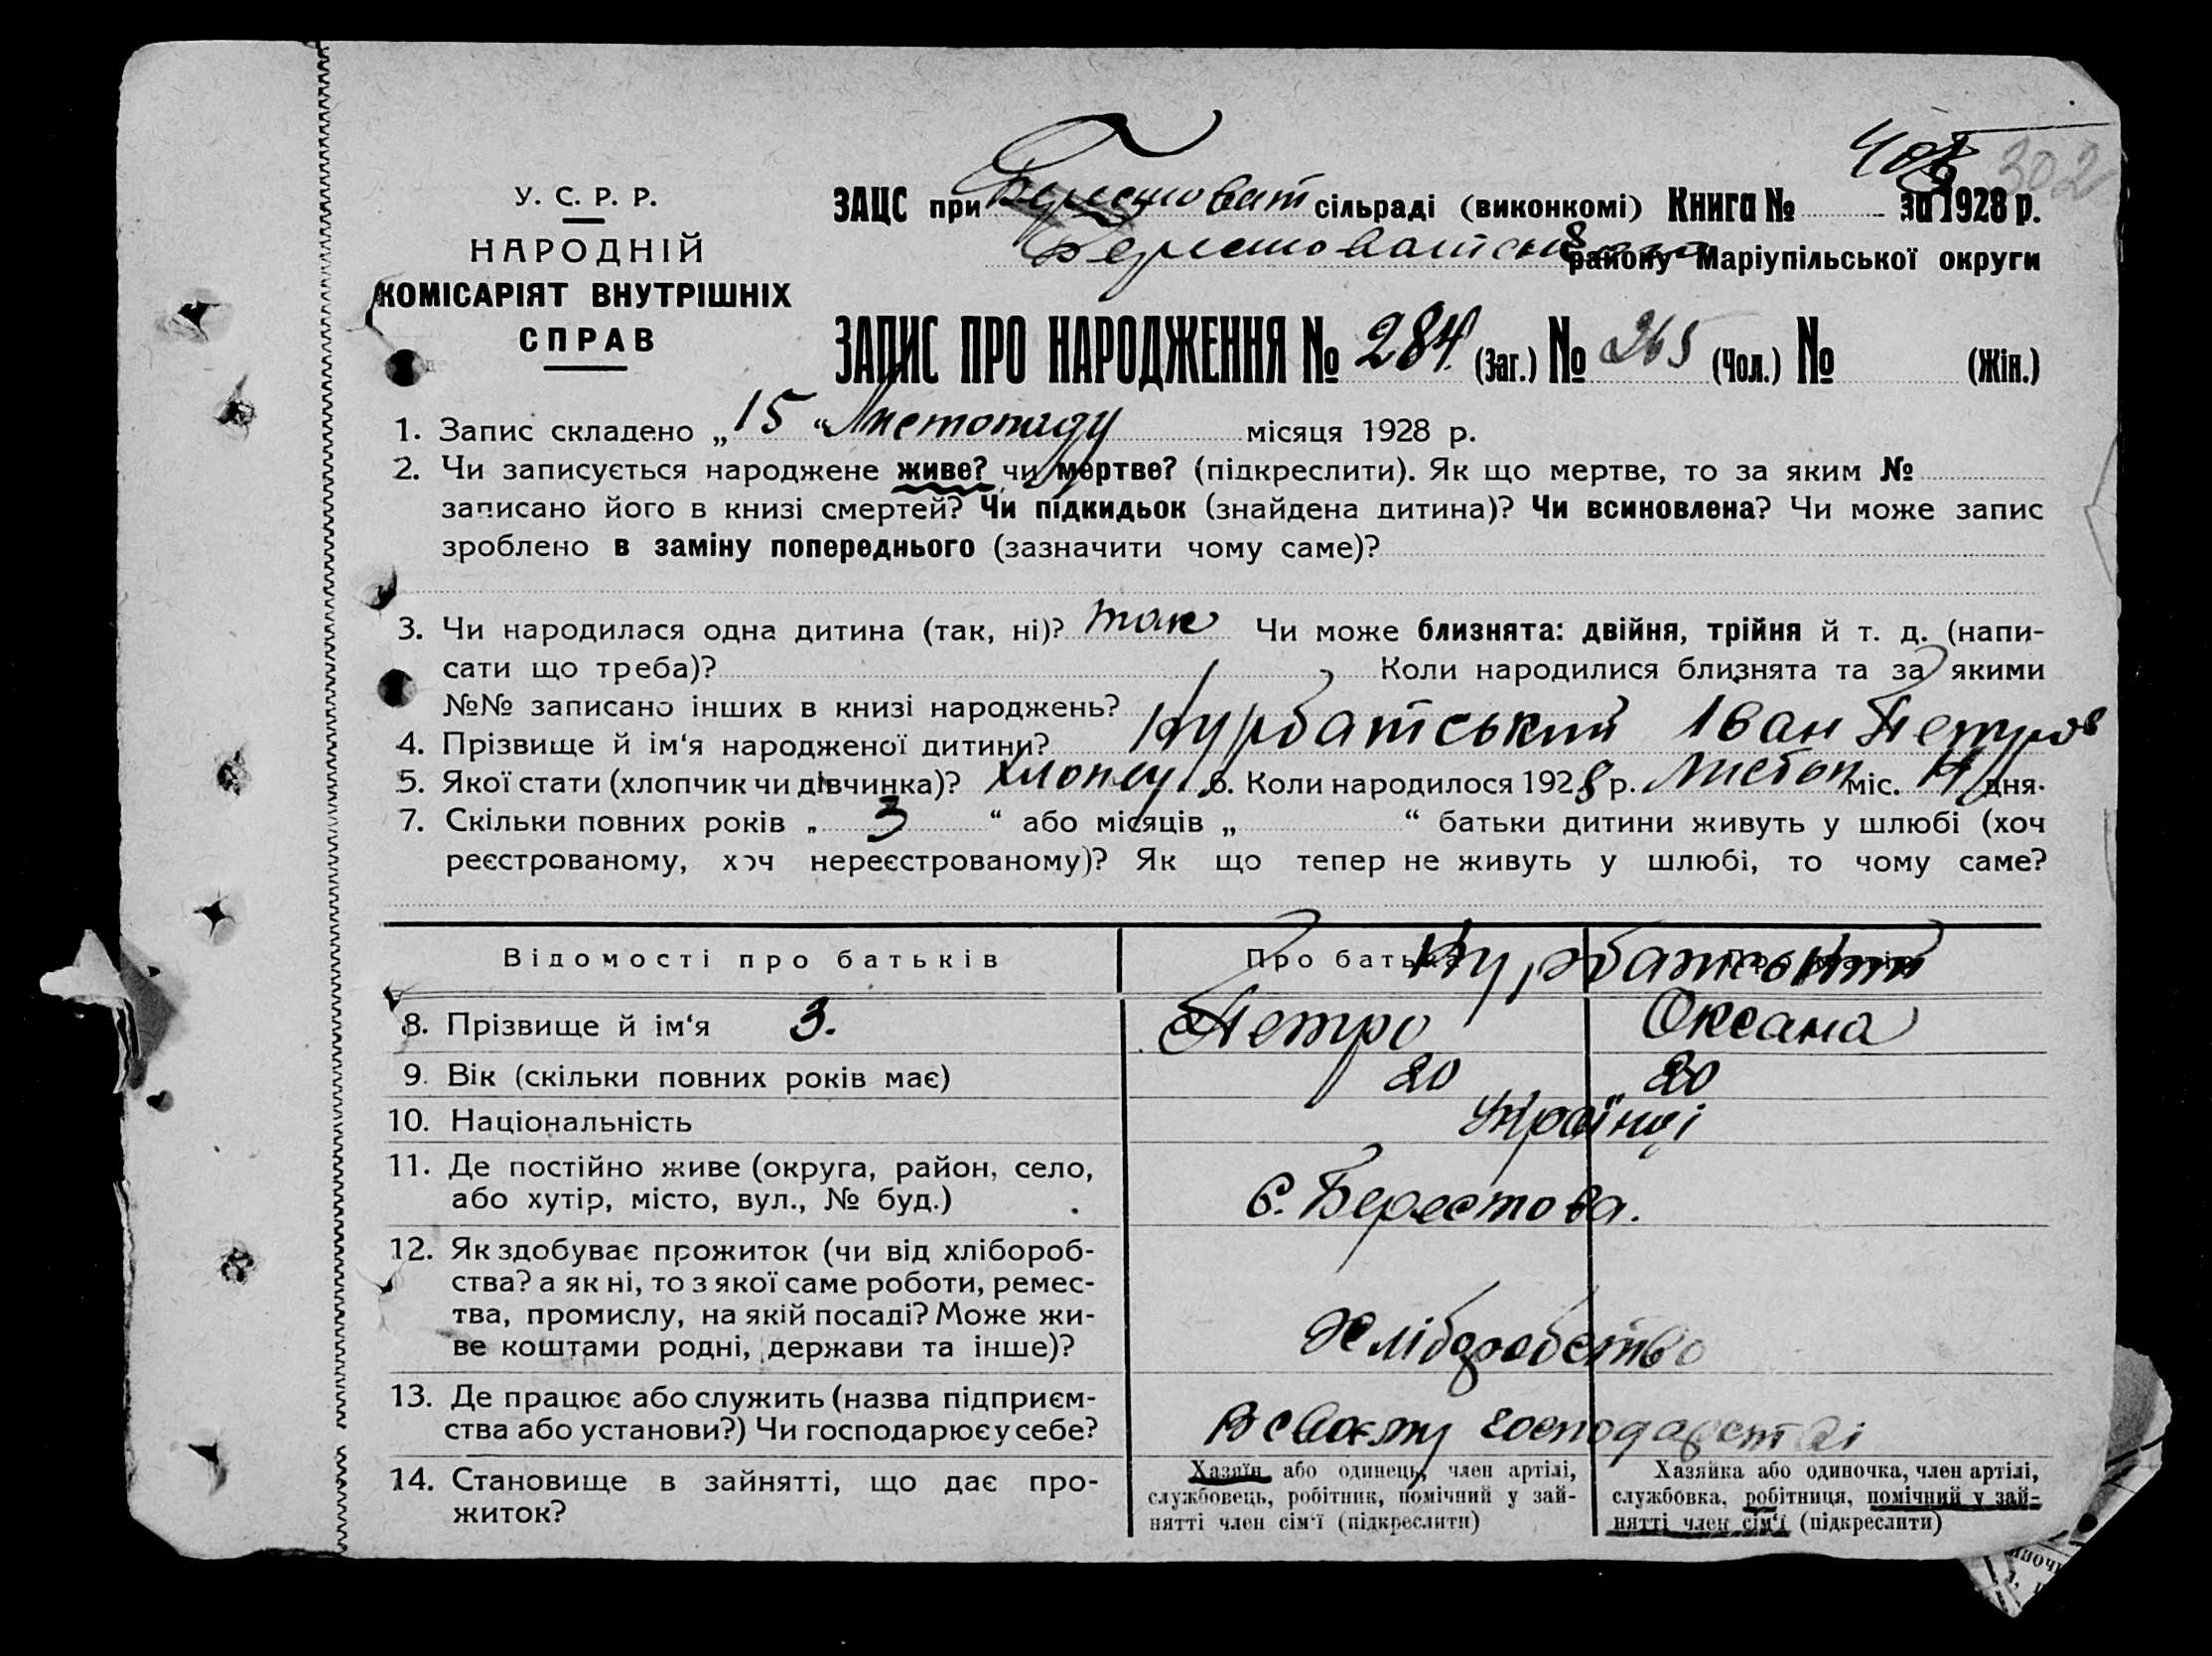 302
У. С. Р. Р.
НАРОДНІЙ
КОМІСАРІЯТ ВНУТРІШНІХ
СПРАВ
ЗАЦС при Берестоват сільраді (виконкомі) Книга № за 1928 р.
Берестоватського району Маріупільської округи
ЗАПИС ПРО НАРОДЖЕННЯ № 284 (Заг.) № 265 (Чол.) № (Жін.)
1. Запис складено „ 15 “ Листопаду місяця 1928 р.
2. Чи записується народжене живе? чи мертве? (підкреслити). Як що мертве, то за яким №
записано його в книзі смертей? Чи підкидьок (знайдена дитина)? Чи всиновлена? Чи може запис
зроблено в заміну попереднього (зазначити чому саме)?
3. Чи народилася одна дитина (так, ні)? так Чи може близнята: двійня, трійня й т. д. (напи-
сати що треба)? Коли народилися близнята та за якими
№№ записано інших в книзі народжень?
4. Прізвище й ім‘я народженої дитини? Курбатський Іван Петров
5. Якої стати (хлопчик чи дівчинка)? хлопч. 6. Коли народилося 1928 р. Листоп міс. 14 дня.
7. Скільки повних років „ 3 “ або місяців „ “ батьки дитини живуть у шлюбі (хоч
реєстрованому, хоч нереєстрованому)? Як що тепер не живуть у шлюбі, то чому саме?
Відомості про батьків Про батька Про матір
Курбатські
8. Прізвище й ім‘я 3. Петро Оксана
9. Вік (скільки повних років має) 20 20
10. Національність Українці
11. Де постійно живе (округа, район, село,
або хутір, місто, вул., № буд.) с. Берестова.
12. Як здобуває прожиток (чи від хлібороб-
ства? а як ні, то з якої саме роботи, ремес-
тва, промислу, на якій посаді? Може жи-
ве коштами родні, держави та інше)? Хліборобство
13. Де працює або служить (назва підприєм-
ства або установи?) Чи господарює у себе? В своєму господарстві
14. Становище в зайнятті, що дає про-
житок?
Хазяїн або одинець, член артілі,
службовець, робітник, помічний у зай-
нятті член сім‘ї (підкреслити)
Хазяйка або одиночка, член артілі,
службовка, робітниця, помічний у зай-
нятті член сім‘ї (підкреслити)